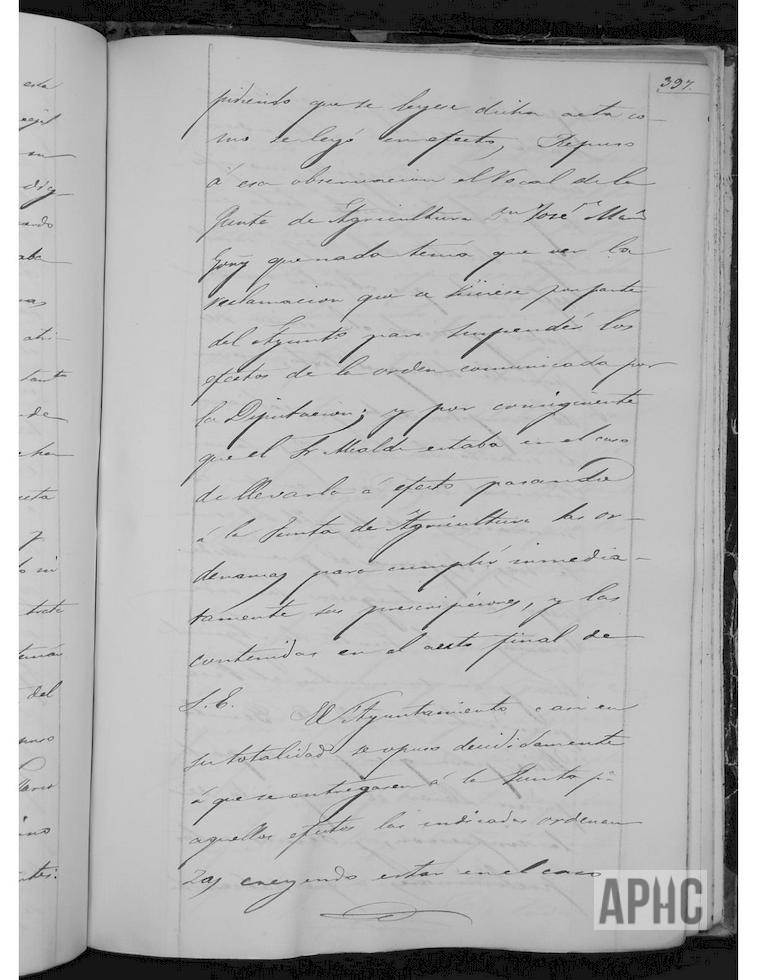 397.
pidiendo que se leyese dicha acta co-
mo se leyó en efecto, Repuso
á esa observacion el Vocal de la
Junta de Agricultura Dn José Ma
Goñy que nada tenia que ver la
reclamacion que se hiciese por parte
del Ayunto para suspender los
efectos de la orden comunicada por
la Diputacion; y por consiguiente
que el Sr Alcalde estaba en el caso
de llevarla á efecto pasando
á la Junta de Agricultura las or-
denanzas para cumplir inmedia-
tamente sus prescripciones, y las
contenidas en el acta final de
S.E. El Ayuntamiento casi en
su totalidad se opuso decididamente
á que se entregasen á la Junta pa
aquellos efectos las indicadas ordenan
zas creyendo estar en el caso
esta
su
dig-
uardo
aba
de
acta
y
trate
del
APHC